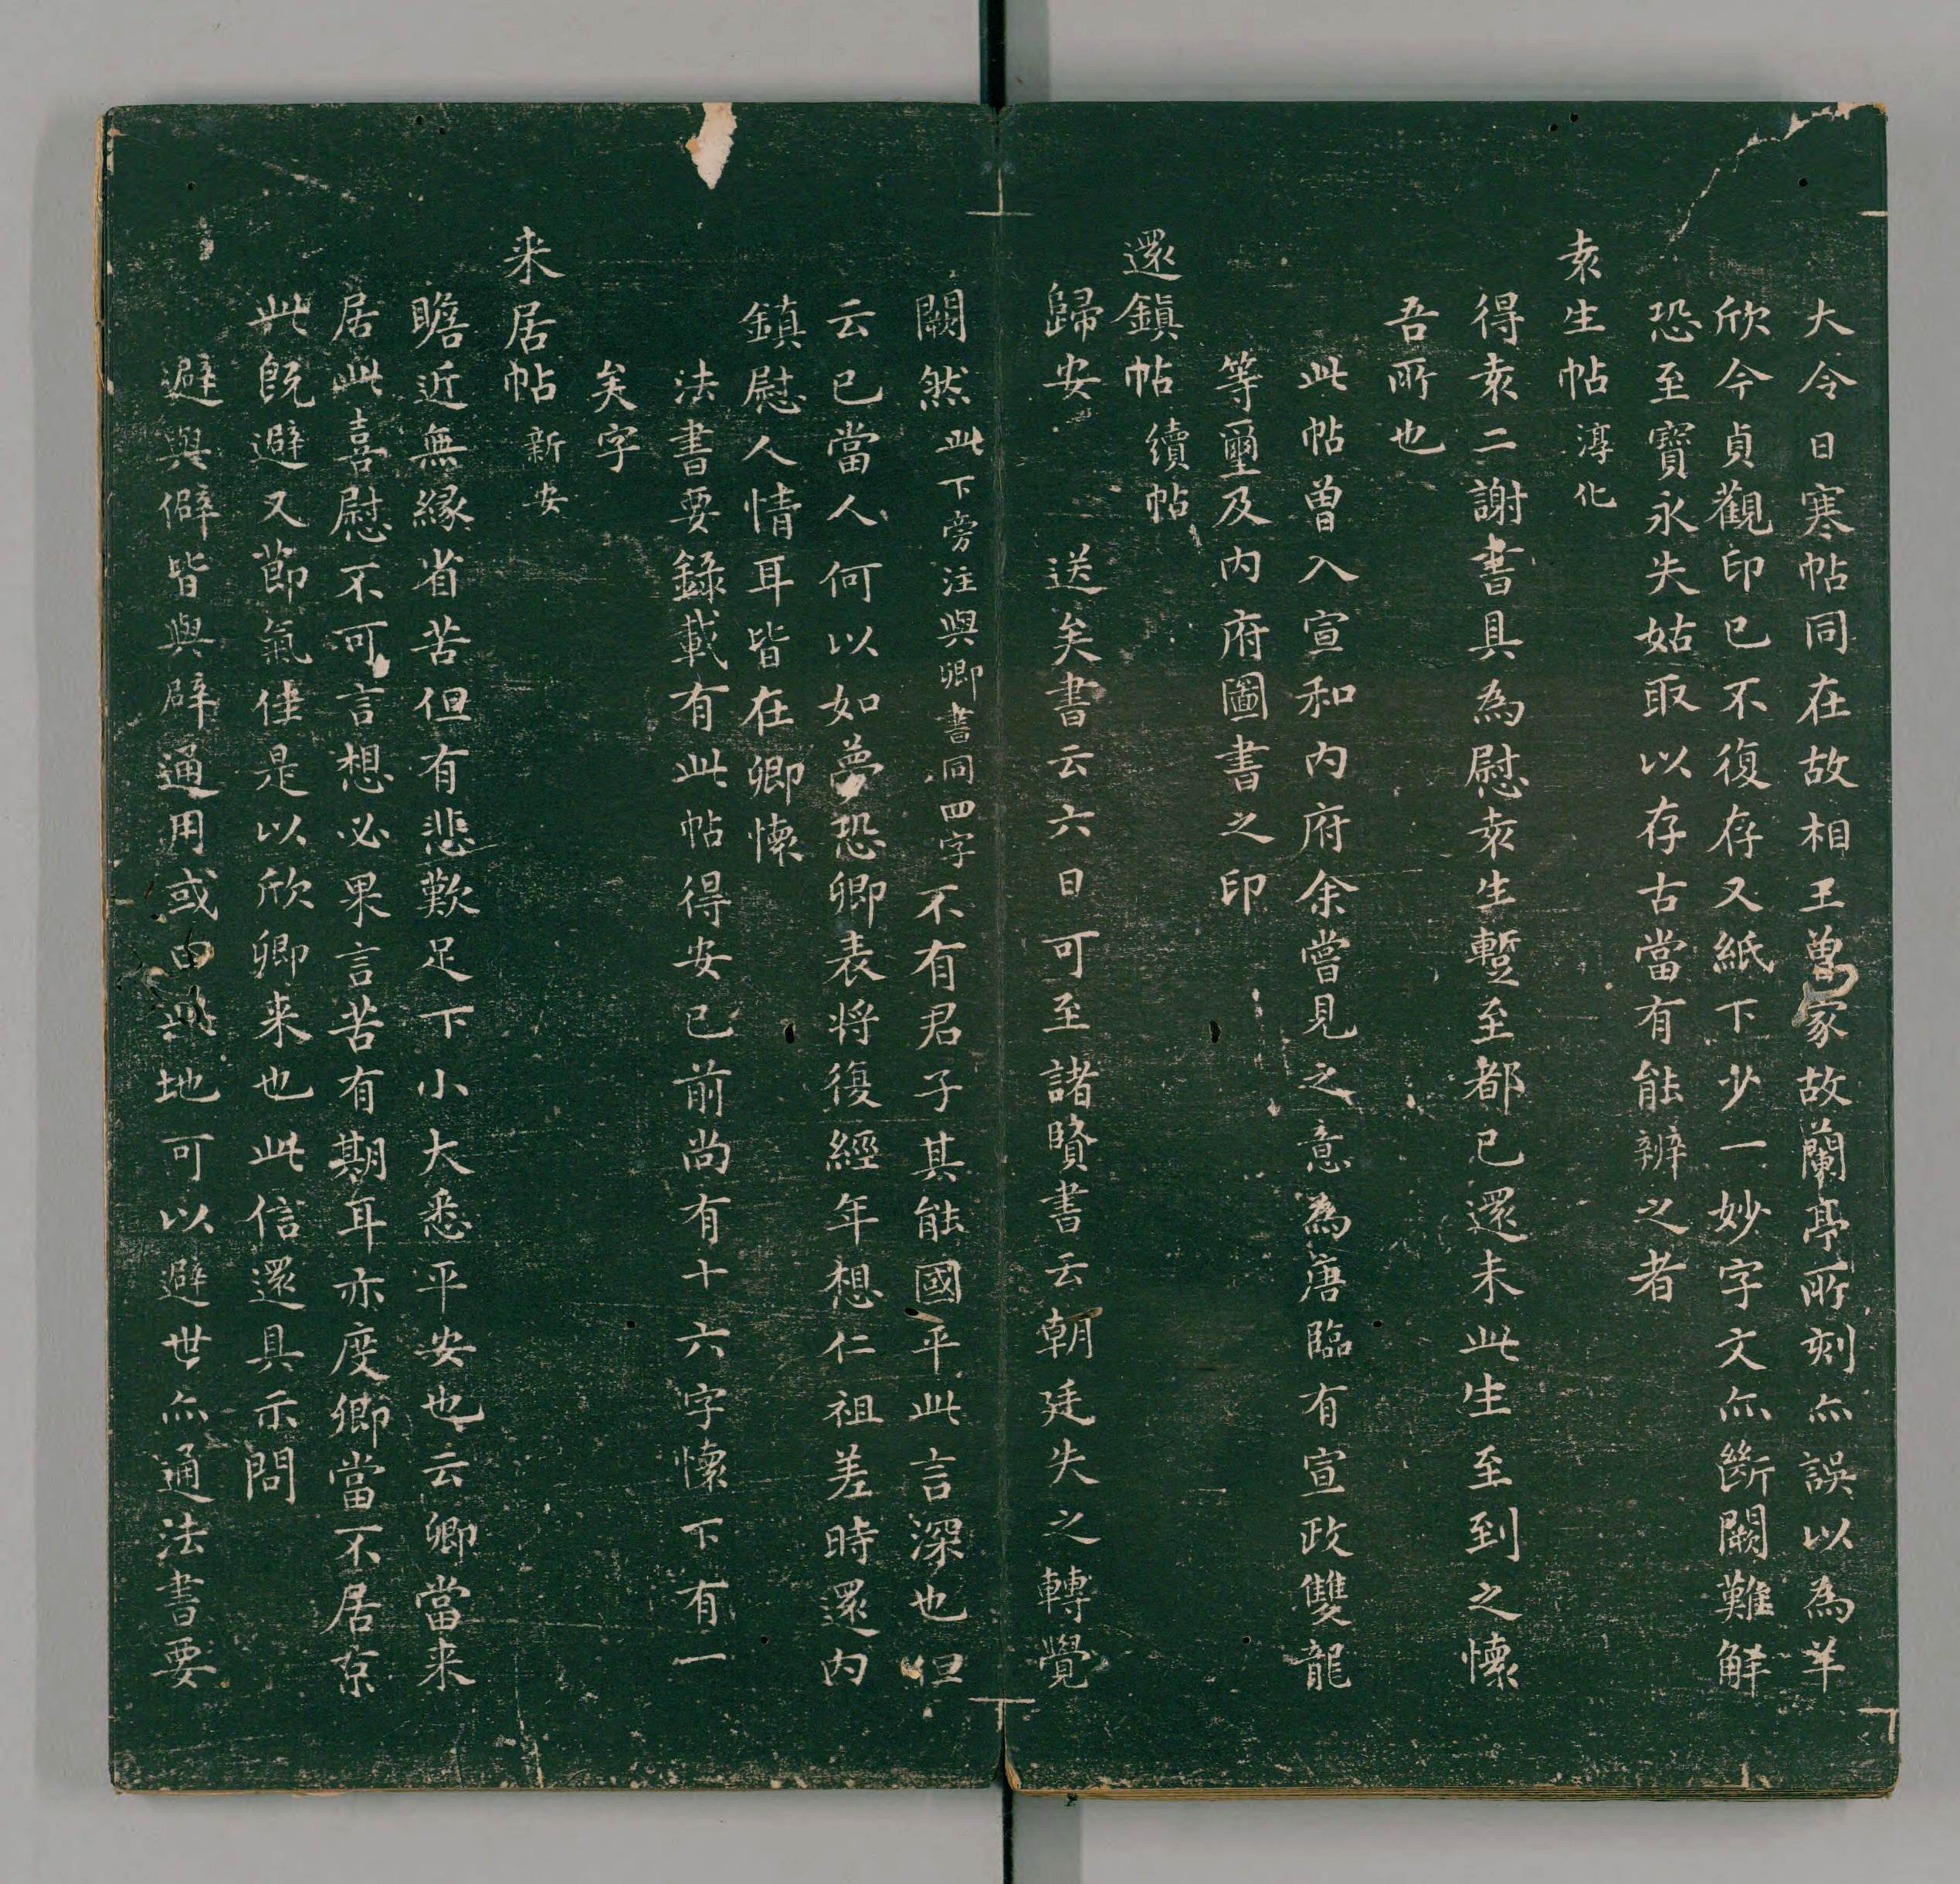 大令日寒帖同在故相王曽家故蘭亭所刻亦誤以為羊
欣今貞觀印已不復存又紙下少一妙字文亦斷闕難解
恐至寶永失姑取以存古當有能辨之者
袁生帖 淳化
得袁二謝書具為慰袁生暫至都已還未此生至到之懷
吾所也
此帖曽入宣和內府余嘗見之意為唐臨有宣政雙龍
等璽及內府圖書之印
還鎮帖 續帖
歸安 送矣書云六日可至諸賢書云朝廷失之轉覺
闕然此下旁注與卿書同四字不有君子其能國乎此言深也但
云已當人何以如夢恐卿表將復經年想仁祖差時還內
鎮慰人情耳皆在卿懷
法書要錄載有此帖得安已前尚有十六字懷下有一
矣字
来居帖 新安
瞻近無緣省苦但有悲歎足下小大悉平安也云卿當来
居此喜慰不可言想必果言苦有期耳亦度卿當不居京
此既避又節氣佳是以欣卿来也此信還具示問
避與僻皆與辟通用或由此地可以避世亦通法書要